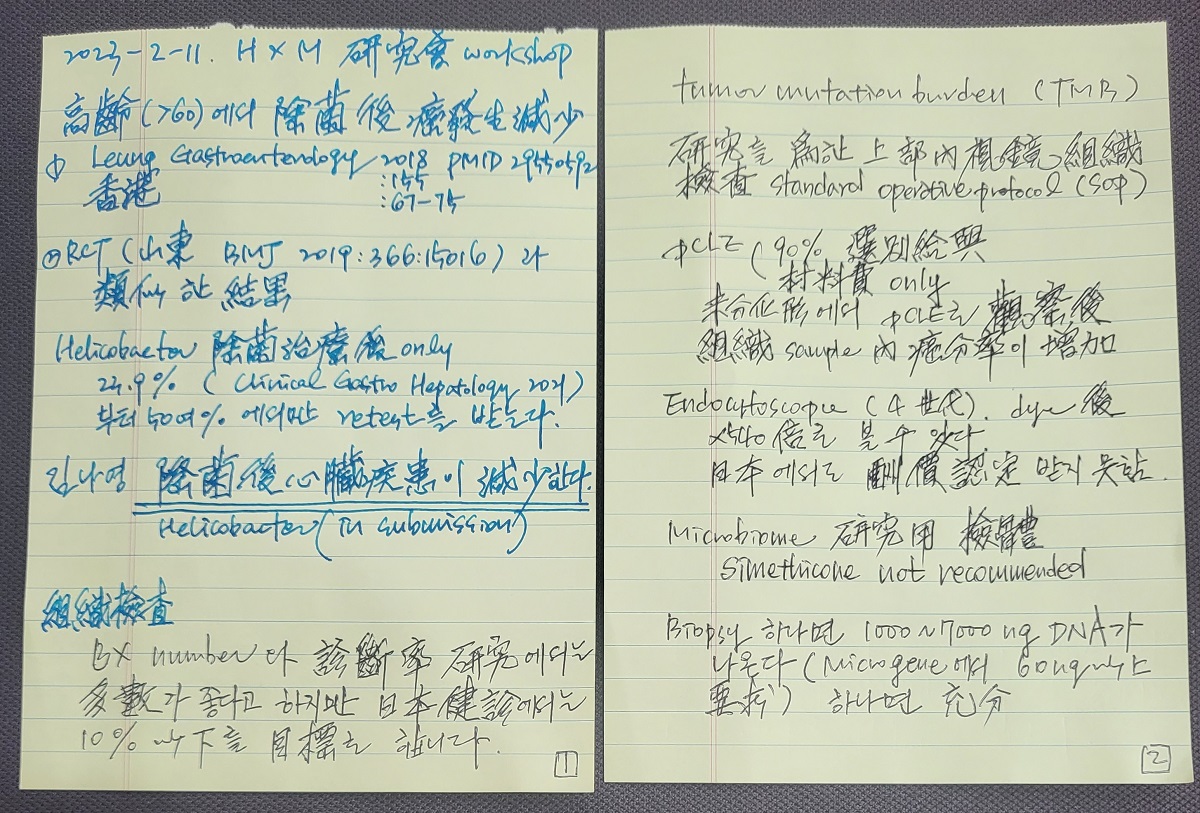 2023-2-11. H x M 研究會 workshop
高齡(>60)에서 除菌後 癌發生減少
① Leung Gastroenterology 2018 PMID 29550592
香港 :155
:67-75
② RCT (山東 BMJ 2019:366:l5016)과
類似한 結果
Helicobacter 除菌治療後 only
23.9% (Clinical Gastro Hepatology 2021)
부터 50여% 에서만 retest를 받는다.
김나영 除菌後 心臟疾患이 減少한다.
Helicobacter (in submission)
組織檢査
Bx number 다 診斷率 硏究에서는
多數가 좋다고 하지만 日本健診에서는
10% 以下를 目標로 합니다.
1
tumor mutation burden (TMB)
硏究를 爲한 上部內視鏡 組織
檢査 standard operative protocol (SOP)
pCLE (90% 選別給與
材料費 only
未分化形에서 pCLE로 觀察後
組織 sample 內 癌分率이 增加
Endocytoscopie (4世代). dye 後
x540 倍로 볼 수 있다.
日本에서도 酬價認定 받지 못함.
Microbiome 硏究用 檢體
Simethicone not recommended
Biopsy 하나면 1000~7000 ng DNA가
나온다 (Microgene에서 60ng以上
要求) 하나면 充分
2